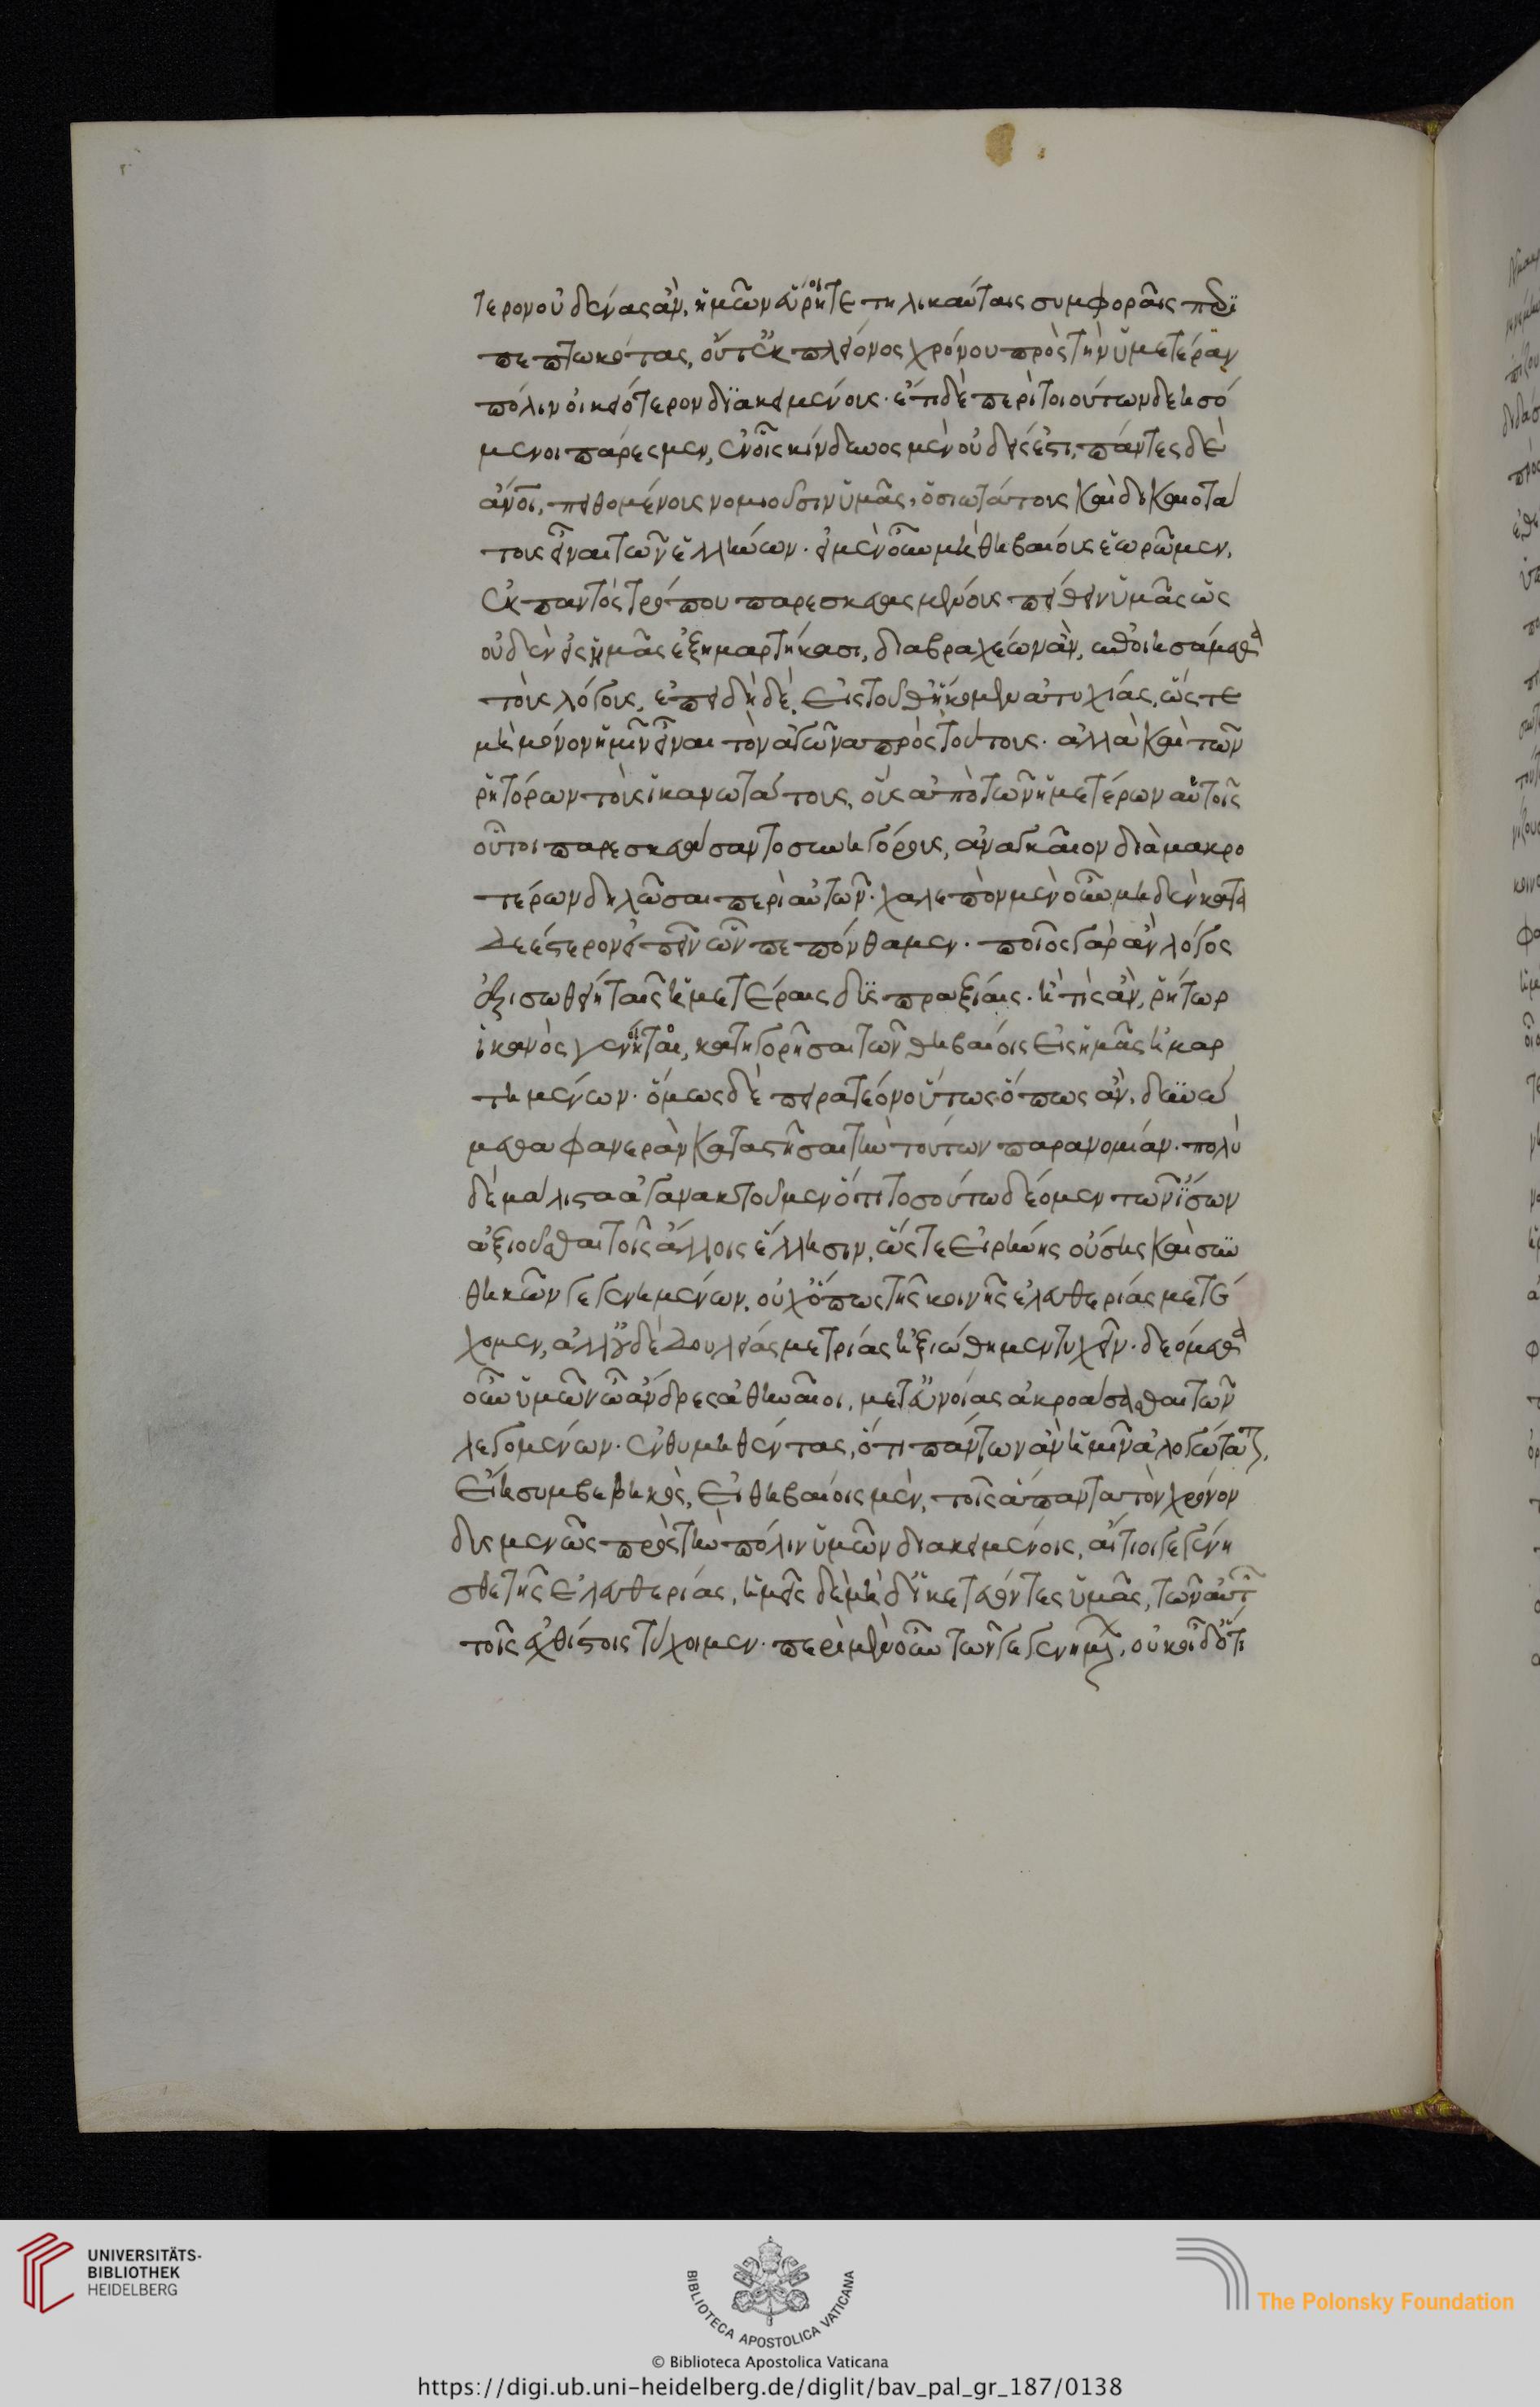 τερον οὐδένας ἂν, ἡμῶν εὕρητε τηλικαύταις συμφοραῖς περι
πεπτωκότας, οὔτ' ἐκ πλείονος χρόνου πρὸς τὴν ὑμετέραν
πόλιν οἰκειότερον διακειμένους. ἔτι δὲ περὶ τοιούτων δεησό
μενοι πάρεσμεν, ἐν οἷς κίνδυνος μὲν οὐδείς ἐστι, πάντες δὲ
ἄνοι, πειθομένους νομιοῦσιν ὑμᾶς, ὁσιωτάτους καὶ δικαιοτά
τους εἶναι τῶν ἑλλήνων. εἰ μὲν οὖν μὴ θηβαίους ἑωρῶμεν,
ἐκ παντὸς τρόπου παρεσκευασμένους πείθειν ὑμᾶς ὡς
οὐδὲν εἰς ἡμᾶς ἐξημαρτήκασι, διαβραχέων ἂν, ἐποιησάμεθα
τοὺς λόγους, ἐπειδὴ δὲ, εἰς τοῦθ' ἥκομεν ἀτυχίας, ὥστε
μὴ μόνον ἡμῖν εἶναι τὸν ἀγῶνα πρὸς τούτους. ἀλλὰ καὶ τῶν
ῥητόρων τοὺς ἱκανωτάτους, οὓς ἀπὸ τῶν ἡμετέρων αὑτοῖς
οὗτοι παρεσκευάσαντο συνηγόρους, ἀναγκαῖον διὰ μακρο
τέρων δηλῶσαι περὶ αὐτῶν. χαλεπὸν μὲν οὖν μηδὲν κατα
δεέστερον εἰπεῖν ὧν πεπόνθαμεν. ποῖος γὰρ ἂν λόγος
ἐξισωθείη ταῖς ἡμετέραις δυσπραξίαις. ἢ τὶς ἂν, ῥήτωρ
ἱκανὸς γένηται, κατηγορῆσαι τῶν θηβαίοις εἰς ἡμᾶς ἡμαρ
τημένων. ὅμως δὲ πειρατέον οὕτως ὅπως ἂν, δυνώ
μεθα φανερὰν καταστῆσαι τὴν τούτων παρανομίαν. πολὺ
δὲ μάλιστα ἀγανακτοῦμεν ὅτι τοσούτω δέομεν τῶν ἴσων
ἀξιοῦσθαι τοῖς ἄλλοις ἕλλησιν, ὥστε εἰρήνης οὔσης καὶ συν
θηκῶν γεγενημένων, οὐχ' ὅπως τῆς κοινῆς ἐλευθερίας μετέ
χομεν, ἀλλ' οὐδὲ δουλείας μετρίας ἠξιώθημεν τυχεῖν. δεόμεθα
οὖν ὑμῶν ὦ ἄνδρες ἀθηναῖοι, μετ' εὐνοίας ἀκροάσασθαι τῶν
λεγομένων. ἐνθυμηθέντας, ὅτι πάντων ἂν ἡμῖν ἀλογώτατον,
εἴη συμβεβηκὸς, εἰ θηβαίοις μὲν, τοῖς ἅπαντα τὸν χρόνον
δυσμενῶς πρὸς τὴν πόλιν ὑμῶν διακειμένοις, αἴτιοι γεγένη
σθε τῆς ἐλευθερίας, ἡμεῖς δὲ μὴ δ' ἱκετεύοντες ὑμᾶς, τῶν αὐτῶν
τοῖς ἐχθίστοις τύχοιμεν. περὶ μὲν οὖν τῶν γεγενημένων, οὐκ οἶδ' ὅτι
UNIVERSITÄTS-
BIBLIOTHEK
HEIDELBERG
BIBLIOTECA APOSTOLICA VATICANA
The Polonsky Foundation
© Biblioteca Apostolica Vaticana
https://digi.ub.uni-heidelberg.de/diglit/bav_pal_gr_187/0138